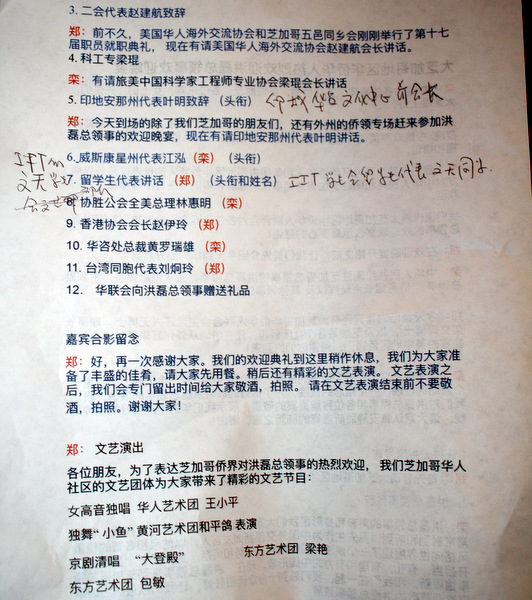 3. 二会代表赵建航致辞
郑：前不久，美国华人海外交流协会和芝加哥五邑同乡会刚刚举行了第十七
届职员就职典礼，现在有请美国华人海外交流协会赵建航会长讲话。
4. 科工专梁琨
栾：有请旅美中国科学家工程师专业协会梁琨会长讲话
5. 印地安那州代表叶明致辞（头衔）
郑：今天到场的除了我们芝加哥的朋友们，还有外州的侨领专场赶来参加洪
磊总领事的欢迎晚宴，现在有请印地安那州代表叶明讲话。
6. 威斯康星州代表江泓（栾）（头衔）
7. 留学生代表讲话（郑）（头衔和姓名）
8. 协胜公会全美总理林惠明（栾）
9. 香港协会会长赵伊玲（郑）
10. 华咨处总裁黄罗瑞雄（栾）
11. 台湾同胞代表刘炯玲（郑）
12. 华联会向洪磊总领事赠送礼品
嘉宾合影留念
郑：好，再一次感谢大家。我们的欢迎典礼到这里稍作休息，我们为大家准
备了丰盛的佳肴，请大家先用餐。稍后还有精彩的文艺表演。 文艺表演之
后，我们会专门留出时间给大家敬酒，拍照。 请在文艺表演结束前不要敬
酒，拍照。谢谢大家！
郑： 文艺演出
各位朋友，为了表达芝加哥侨界对洪磊总领事的热烈欢迎，我们芝加哥华人
社区的文艺团体为大家带来了精彩的文艺节目：
女高音独唱 华人艺术团 王小平
独舞“ 小鱼” 黄河艺术团和平鸽 表演
京剧清唱 “大登殿” 东方艺术团 梁艳
东方艺术团 包敏